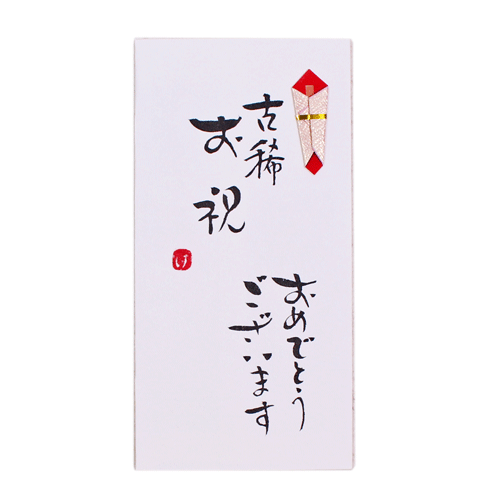 古稀
お祝
おめでとう
ございます